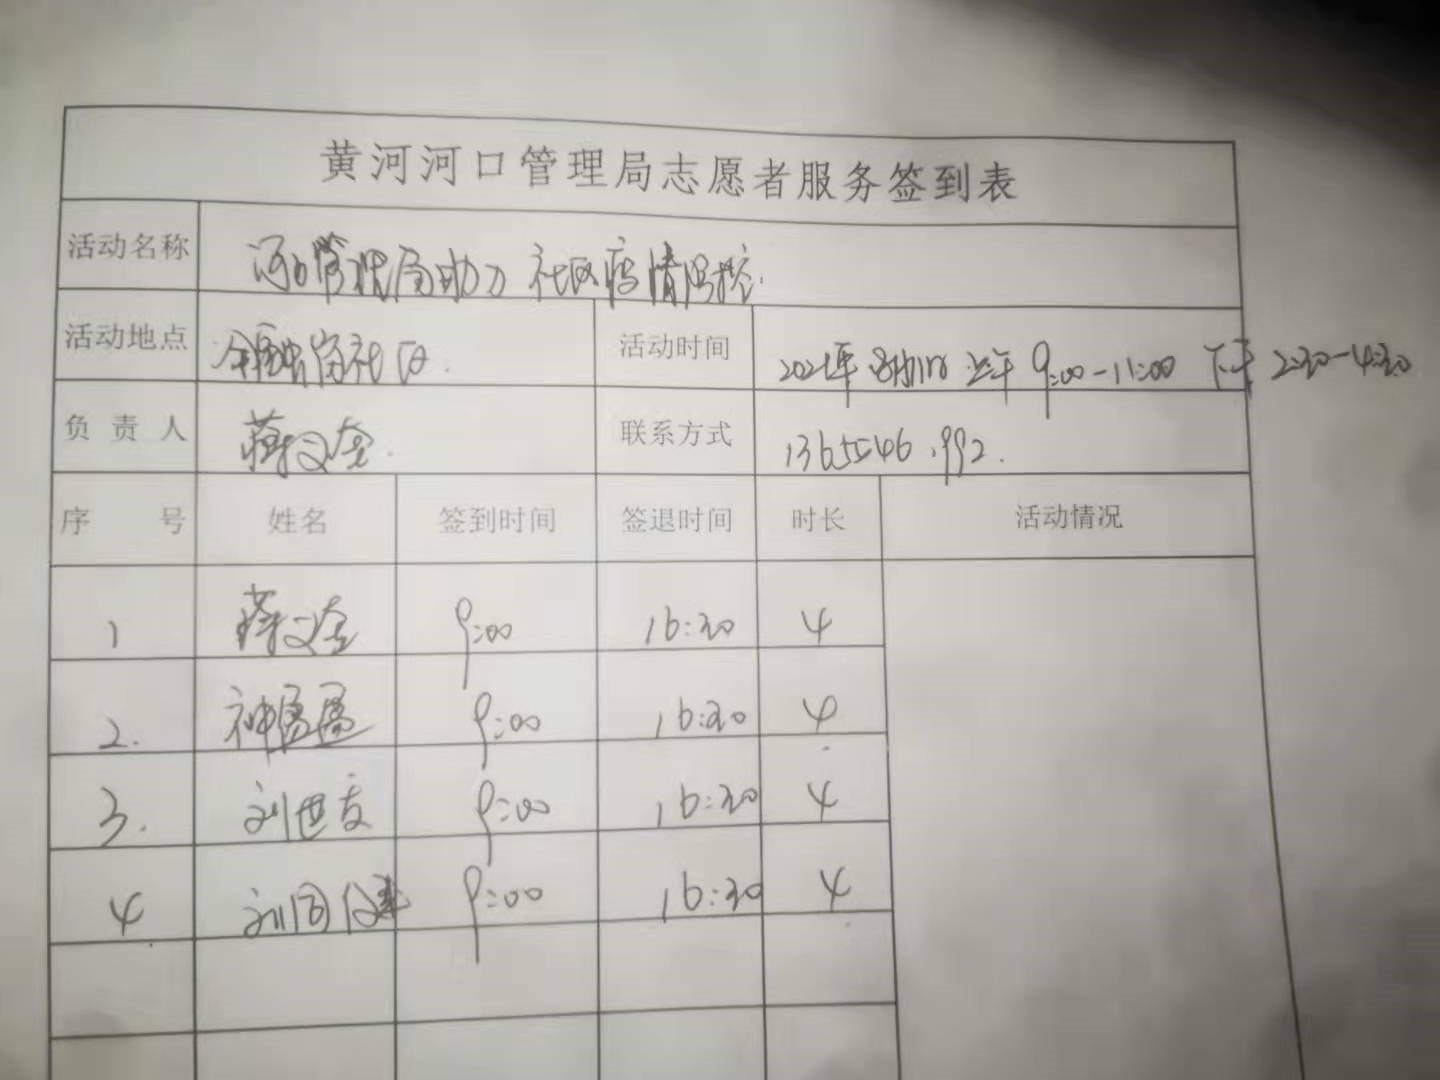 黄河河口管理局志愿者服务签到表
活动名称 河口管理局助力社区疫情防控.
活动地点 社区. 活动时间 上午 9:00-11:00 下午 2:30-4:30
负责人 蒋文奎. 联系方式
序号 姓名 签到时间 签退时间 时长 活动情况
1 蒋文奎 9:00 16:30 4
2. 神 9:00 16:30 4
3. 刘世友 9:00 16:30 4
4 刘国健 9:00 16:30 4